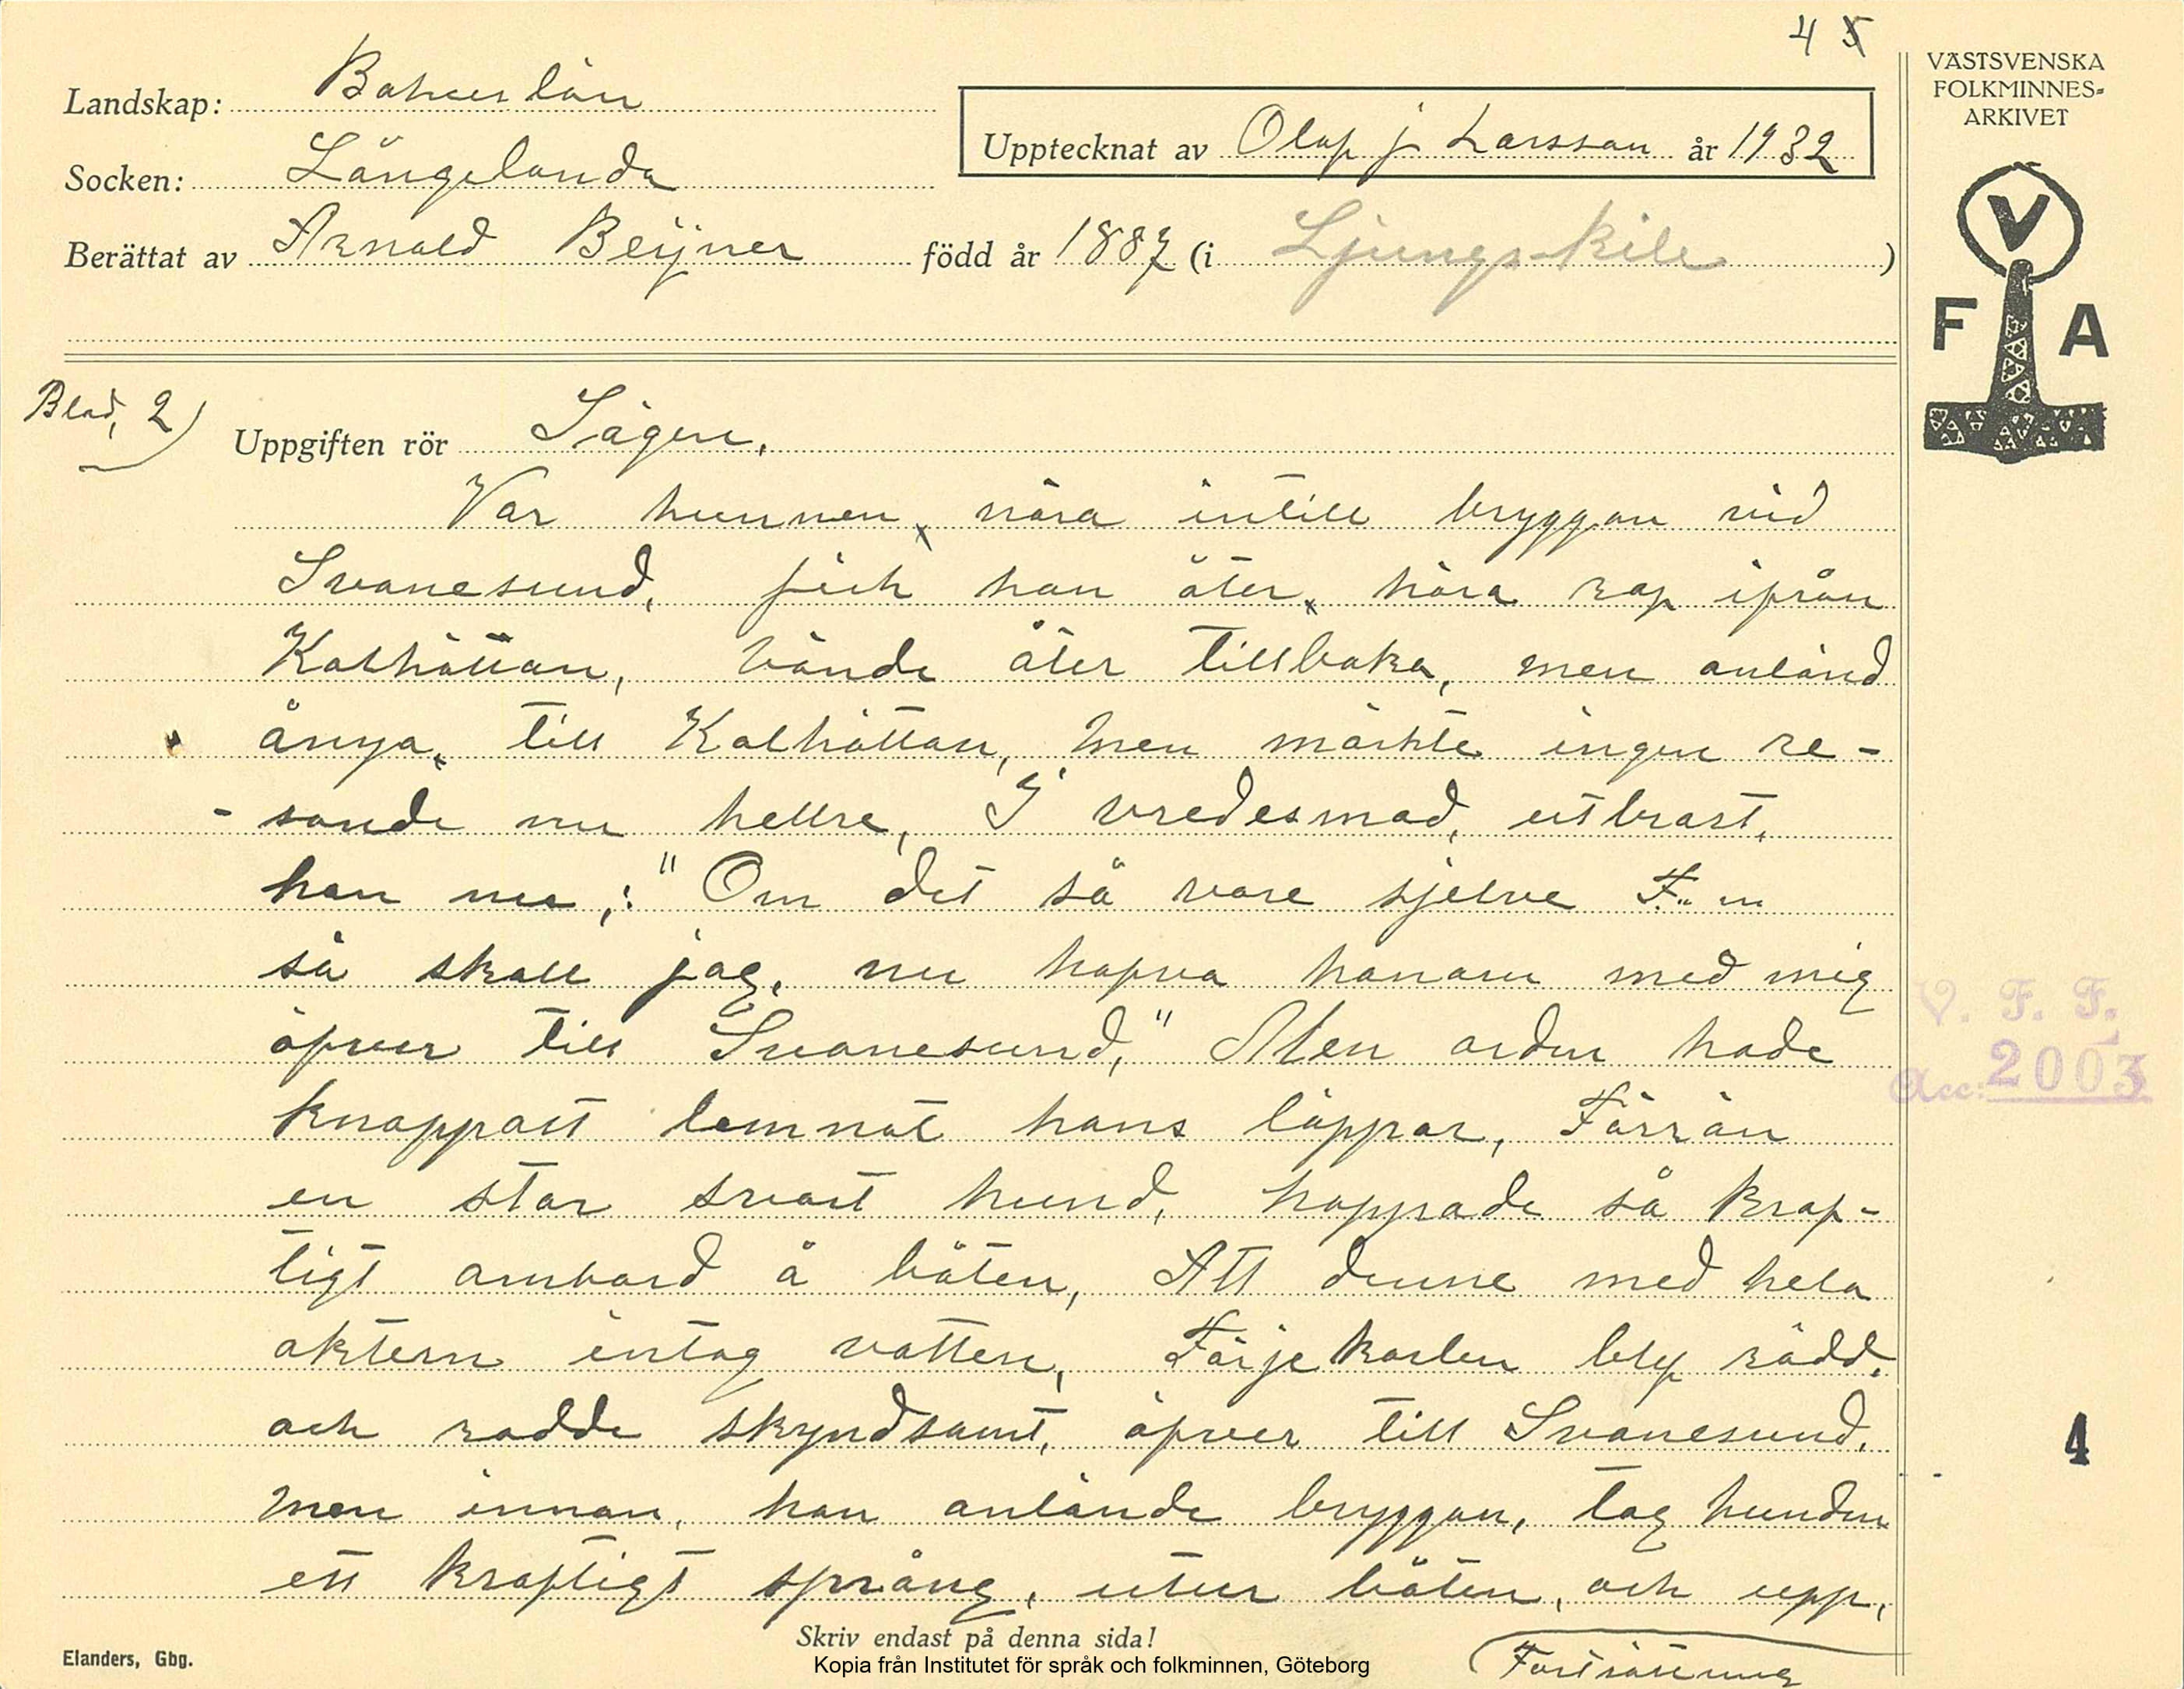 4 5
VÄSTSVENSKA
FOLKMINNES-
ARKIVET
Landskap: Bohus län
Upptecknat av Olof j Larsson år 1932
Socken: Långelanda
Berättat av Arnold Beijner född år 1887 (i Ljungskile)
V
F A
Blad, 2)
Uppgiften rör Sägen.
Var hunnen, nära intill bryggan vid
Svanesund, fick han åter, höra rop ifrån
Kolhättan, vände åter tillbaka, men anländ
ånyo, till Kolhättan, men märkte ingen re-
- sande nu heller, I vredesmod, utbrast,
han nu,: "Om det så vore sjelve F... n
så skall jag, nu hafva honom med mig
öfver till Svanesund," Men orden hade
knappast lemnat hans läppar, Förrän
en stor svart hund, hoppade så kraf-
tigt ombord å båten, Att denne med hela
aktern intog vatten, Färjekarlen blef rädd,
och rodde skyndsamt, öfver till Svanesund,
men innan, han anlände bryggan, tog hunden
ett kraftigt språng, utur båten, och upp,
V. F. F.
Acc: 2003
4
Skriv endast på denna sida!
Elanders, Gbg.
Kopia från Institutet för språk och folkminnen, Göteborg
Fortsättning